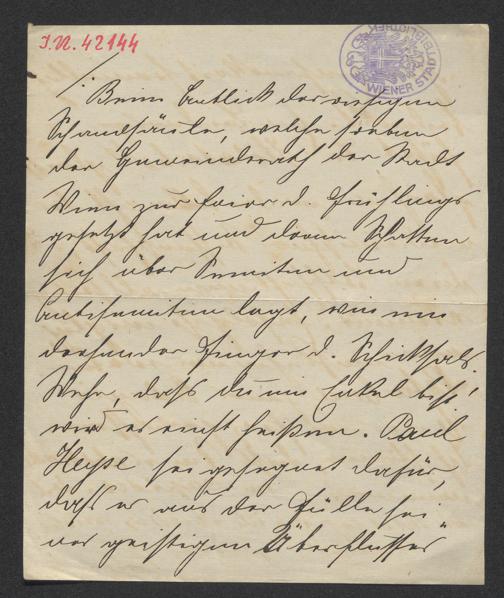 I.N. 42144
WIENER STADTBIBLIOTHEK
/:
Beim Anblick der riesigen
Schandsäule, welche soeben
der Gemeinderath der Stadt
Wien zur Feier d. Frühlings
gesetzt hat und deren Schatten
sich über Semiten und
Antisemiten legt, wie ein
drohender Finger d. Schicksals.
Wehe, dass du ein Enkel bist!
wird es einst heißen. Paul
Heyse sei gesegnet dafür,
dass er aus der Fülle sei
nes geistigen Überflusses